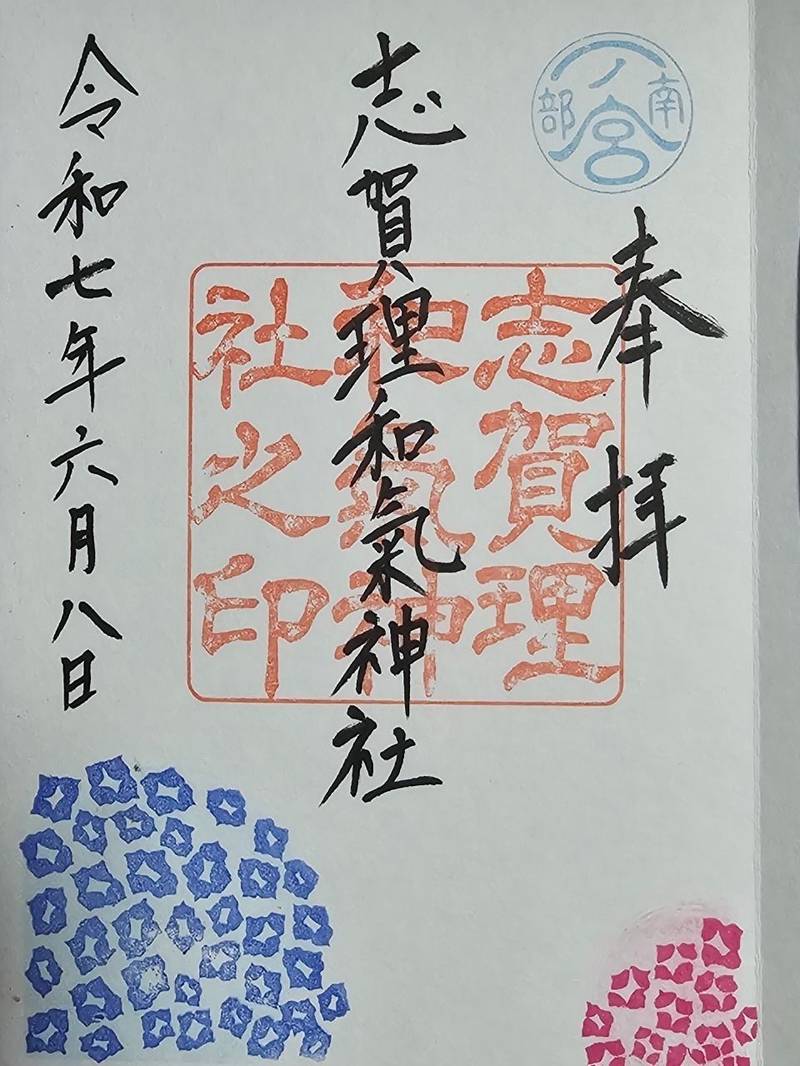 南部
一ノ宮
奉拝
志賀理和氣神社
志賀理
和氣神
社之印
令和七年六月八日